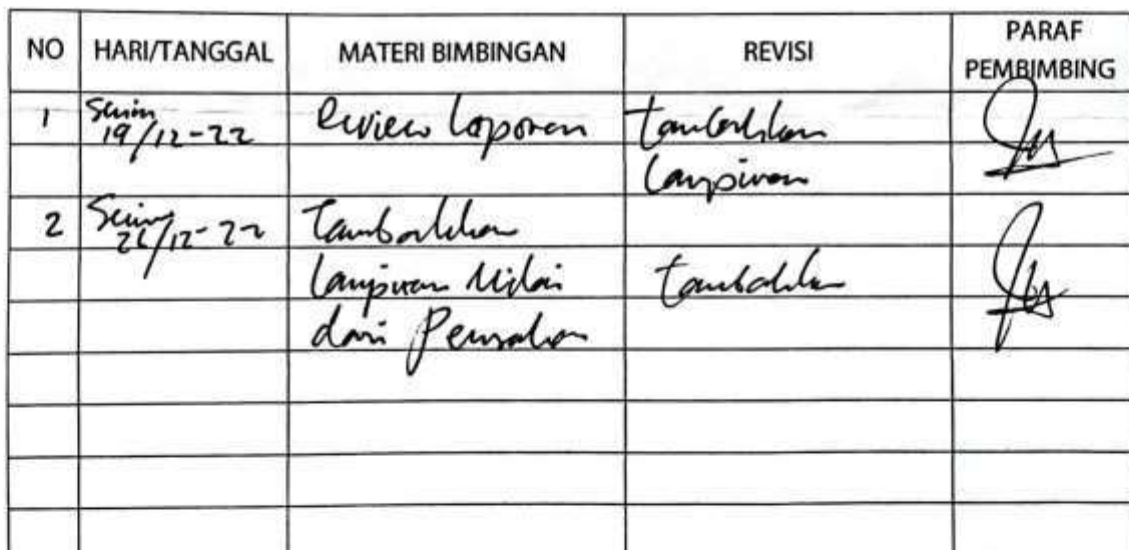 NO HARI/TANGGAL MATERI BIMBINGAN REVISI PARAF PEMBIMBING
1 Senin 19/12-22 Review laporan tambahkan
lampiran
2 Senin 26/12-22 Tambahkan
lampiran Nilai tambahkan
dari Perusahaan